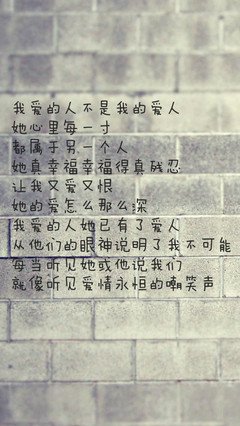 我爱的人不是我的爱人
她心里每一寸
都属于另一个人
她真幸福幸福得真残忍
让我又爱又恨
她的爱怎么那么深
我爱的人她已有了爱人
从他们的眼神说明了我不可能
每当听见她或他说我们
就像听见爱情永恒的嘲笑声